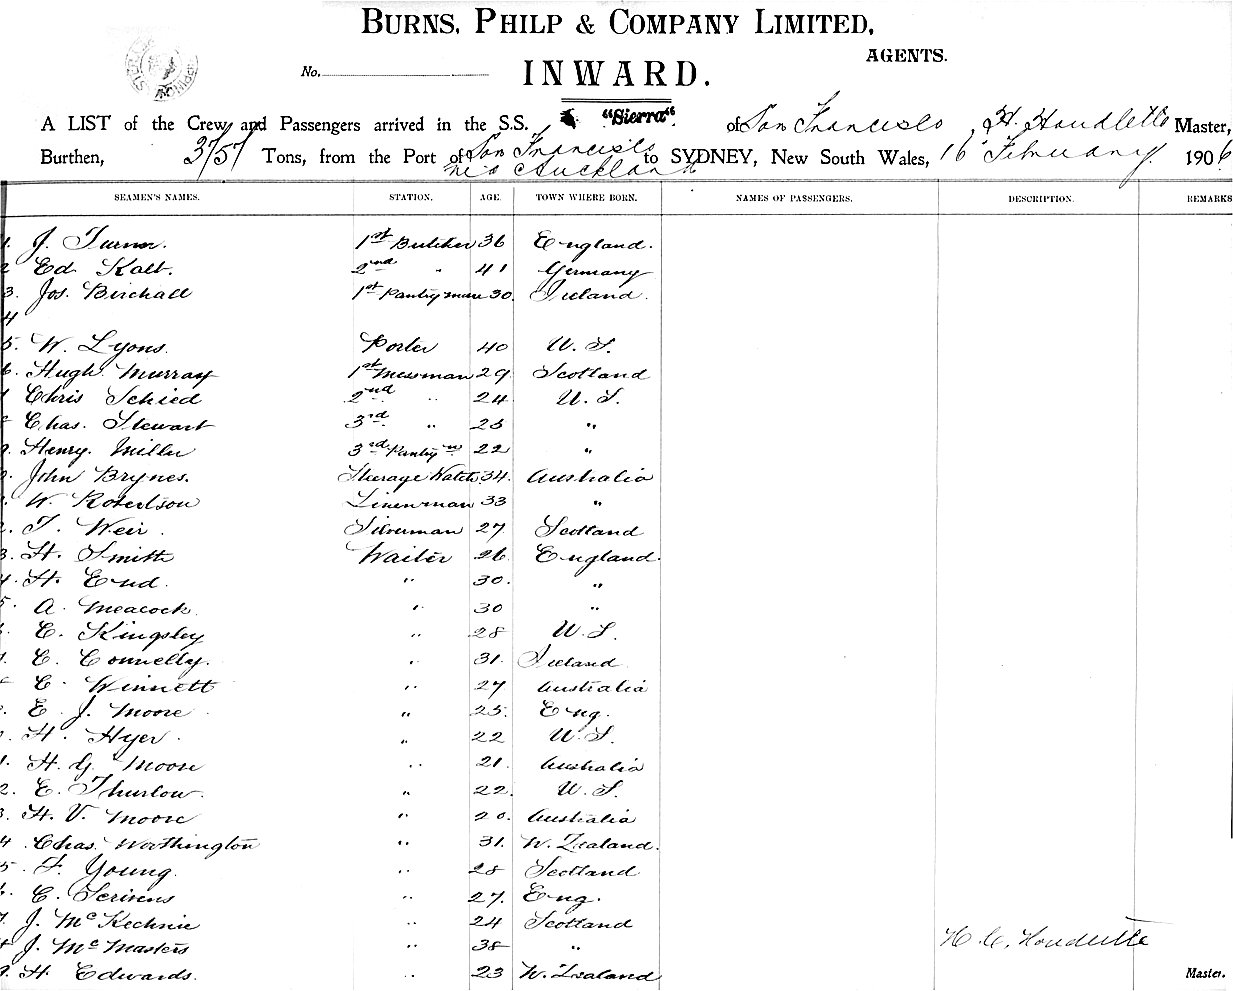 BURNS, PHILP & COMPANY LIMITED,
AGENTS.
No.
INWARD.
A LIST of the Crew and Passengers arrived in the S.S. "Sierra" of San Francisco, H. Houdlette Master,
Burthen, 3751 Tons, from the Port of San Francisco to SYDNEY, New South Wales, 16 February 1906
via Auckland
SEAMEN'S NAMES. STATION. AGE. TOWN WHERE BORN. NAMES OF PASSENGERS. DESCRIPTION. REMARKS
1. J. Turner. 1st Butcher 36 England.
2 Ed Kalt. 2nd " 41 Germany
3. Jos. Birchall 1st Pantryman 30. Ireland.
4
5. W. Lyons. Porter 40 U. S.
6. Hugh Murray 1st Messman 29 Scotland
7 Chris Schied 2nd " 24 U. S.
8 Chas. Stewart 3rd " 23 "
9. Henry. Miller 3rd Pantrym 22 "
0. John Brynes. Steerage Watch 34. Australia
1. W. Robertson Linenman 33 "
2. T. Weir. Silverman 27 Scotland
3. H. Smith Waiter 26 England.
4. H. End. " 30. "
5. A. Meacock. " 30 "
6. E. Kingsley " 28 U. S.
7. C. Connelly. " 31. Ireland
8 C. Winnett " 27 Australia
9. E. J. Moore " 25. Eng.
0. H. Hyer. " 22 U. S.
1. H. G. Moore " 21. Australia
2. E. Thurlow. " 22. U. S.
3. H. V. Moore " 20. Australia
4 Chas. Worthington " 31. N. Zealand.
5 F. Young. " 28 Scotland
6. C. Scrivens " 27. Eng.
7. J. McKechnie " 24 Scotland
8 J. McMasters " 38 "
H. C. Houdlette
9. H. Edwards. " 23 N. Zealand
Master.